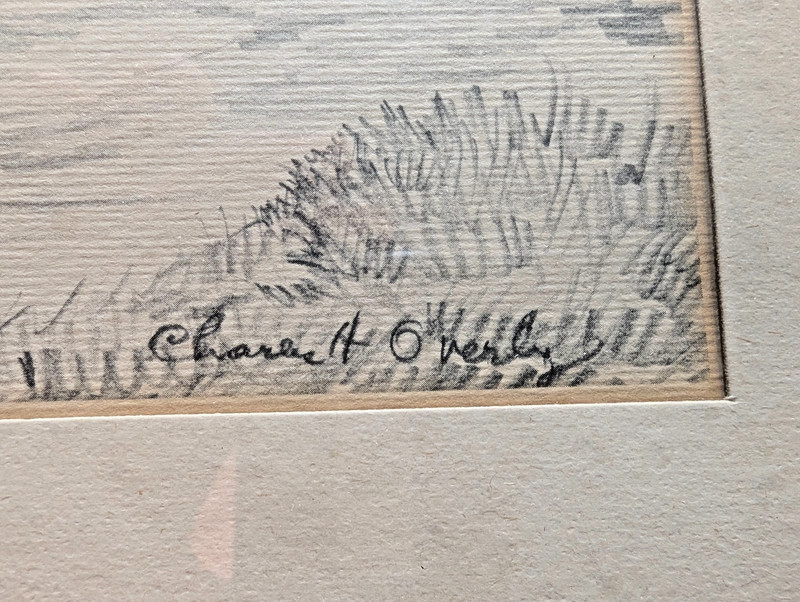 Charles H Overly